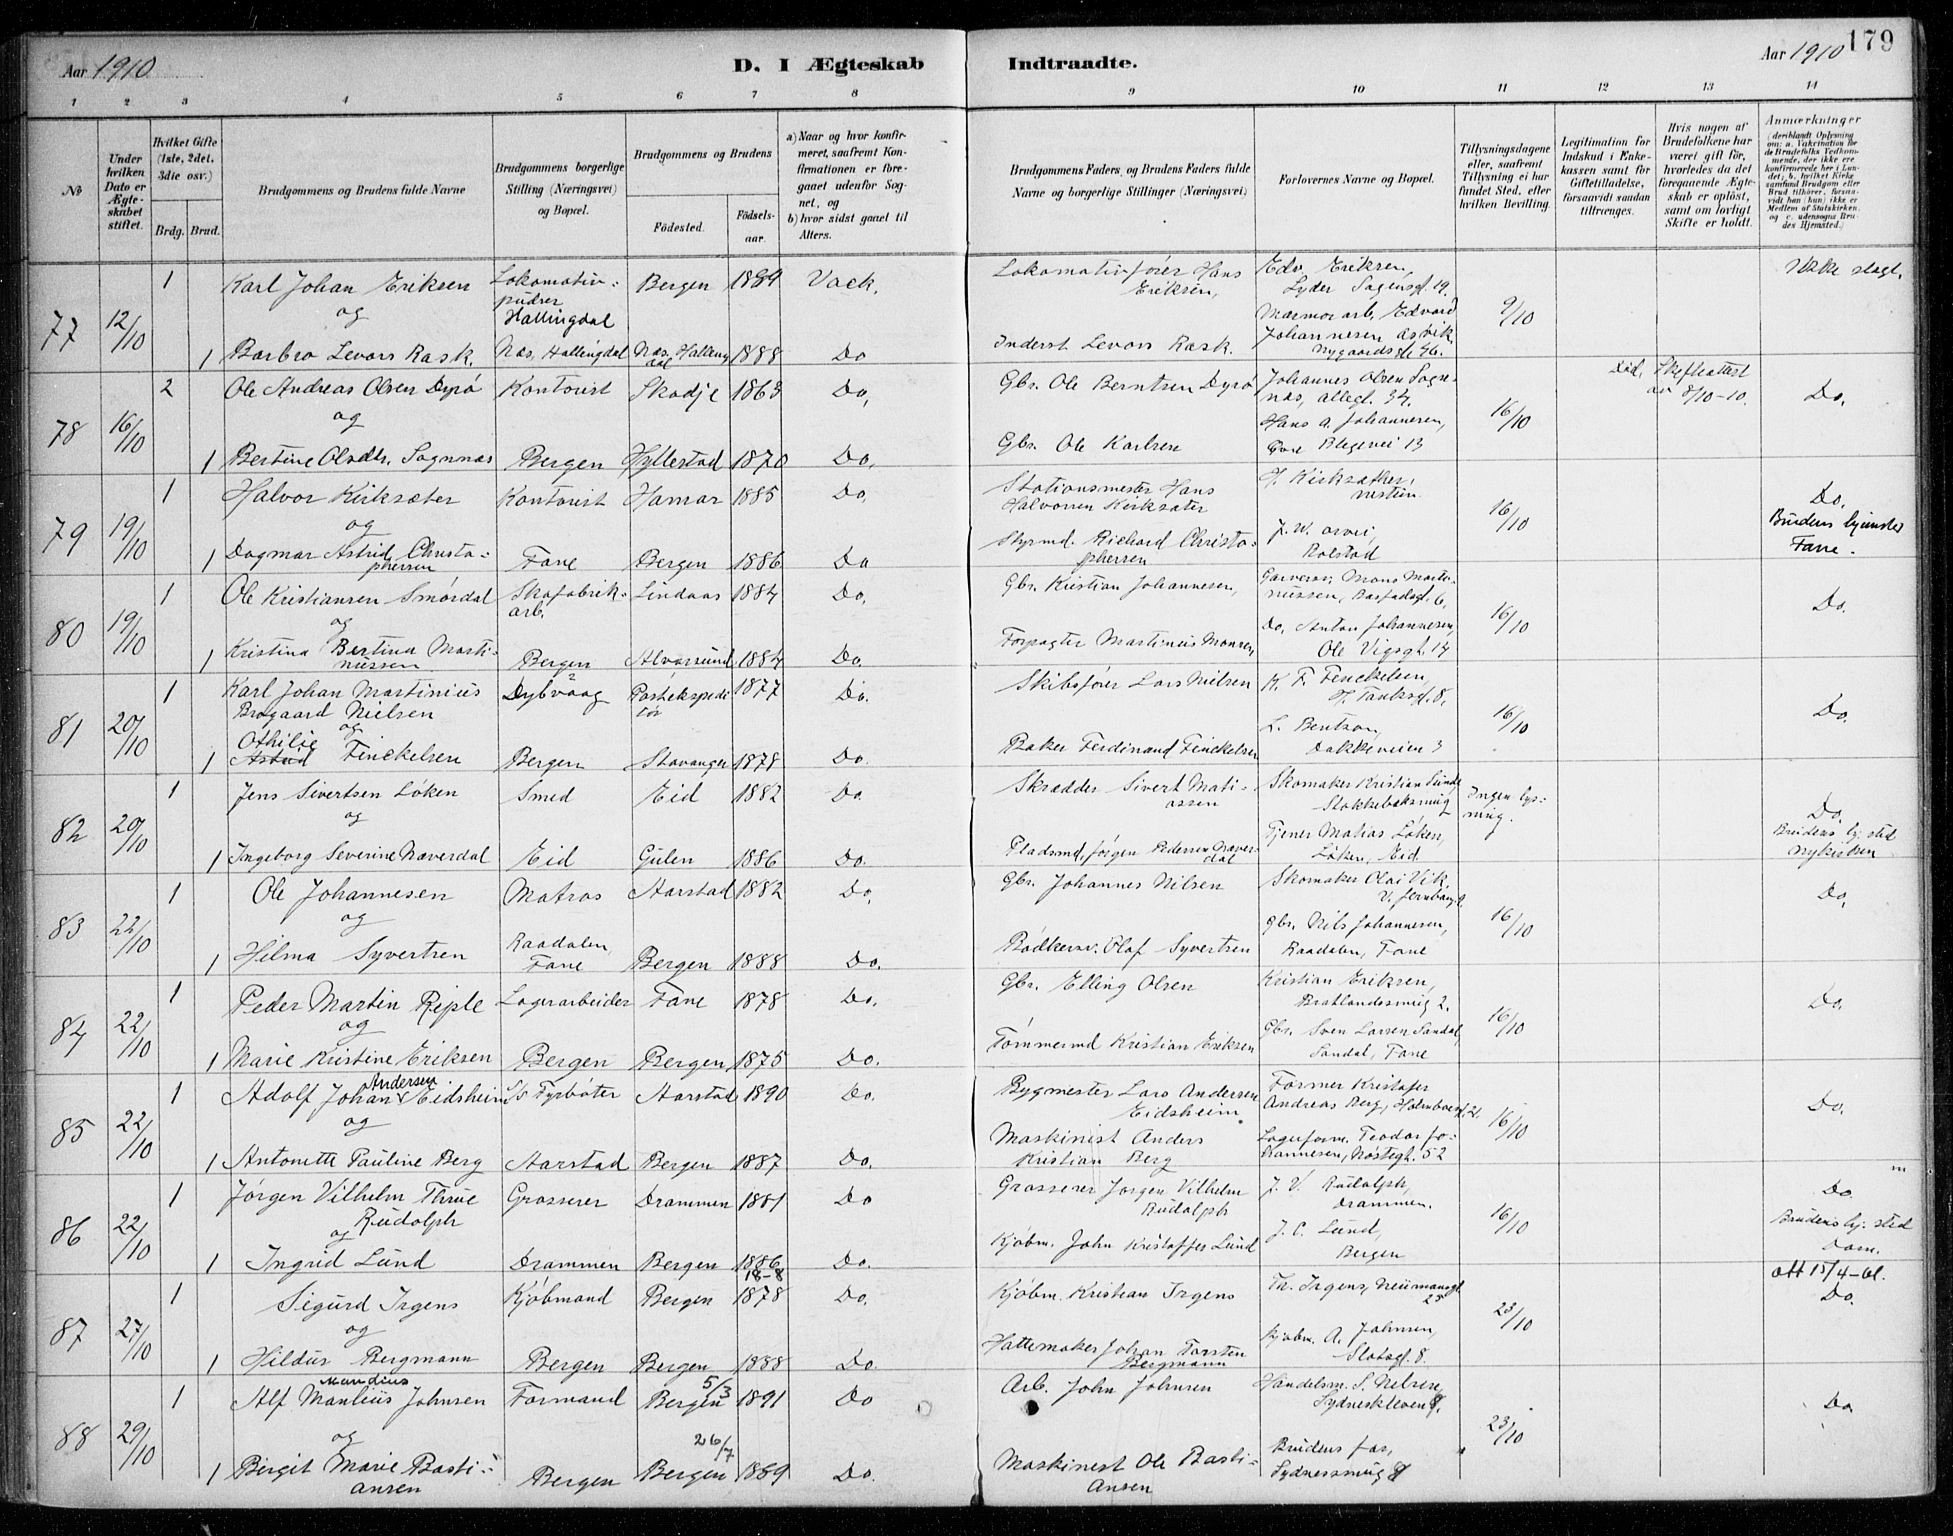 Aar 1910
D. I Ægteskab Indtraadte.
Aar 1910 179
1 2 3 4 5 6 7 8 9 10 11 12 13 14
No
Under hvilken Dato er Ægteskabet stiftet.
Hvilket Gifte (1ste, 2det, 3die osv.)
Brdg. Brud.
Brudgommens og Brudens fulde Navne
Brudgommens borgerlige Stilling (Næringsvei) og Bopæl.
Brudgommens og Brudens
Födested. Födselsaar.
a) Naar og hvor konfirmeret, saafremt Konfirmationen er foregaaet udenfor Sognet, og
b) hvor sidst gaaet til Alters.
Brudgommens Faders, og Brudens Faders fulde Navne og borgerlige Stillinger (Næringsvei)
Forlovernes Navne og Bopæl.
Tillysningsdagene eller, saafremt Tillysning ei har fundet Sted, efter hvilken Bevilling.
Legitimation for Indskud i Enkekassen samt for Giftetilladelse, forsaavidt saadan tiltrænges.
Hvis nogen af Brudefolkene har været gift för, hvorledes da det foregaaende Ægteskab er oplöst, samt om lovligt Skifte er holdt.
Anmærkninger
77 12/10 1 Karl Johan Eriksen Lokomotivpudser Hallingdal Bergen 1889 Vack. Lokomotivfører Hans Eriksen, Edv. Eriksen, Lyder Sagensgt. 19. 9/10 Ikke slegt.
og
1 Barbro Levors Rask. Næs, Hallingdal Næs, Hallingdal 1888 Do Inderst Levor Rask. Marmorarb. Edvard Johannesen Nygaardsgt. 46.
78 16/10 2 Ole Andreas Olsen Dyrö Kontorist Skodje 1863 Do, Gbr. Ole Berntsen Dyrö Johannes Olsen Sognenæs, Allegt. 34. 16/10 Död. Skifteattest av 8/10-10. Do.
og
1 Bertine Olsdtr. Sognnæs Bergen Hyllestad 1870 Do, Gbr. Ole Karlsen Hans A. Johannesen, 13
79 19/10 1 Halvor Kirksæter Kontorist Hamar 1885 Do, Stationsmester Hans Halvorsen Kirksæter H. Kirksæther, 16/10 Do. Brudens hjemsted Fane.
og
1 Dagmar Astrid Christophersen Fane Bergen 1886 Do Styrmd. Richard Christophersen J. W. Rolstad
80 19/10 1 Ole Kristiansen Smördal Skofabrikarb. Lindaas 1884 Do, Gbr. Kristian Johannesen, Garversv. Mons Martinussen, 6, 16/10 Do.
og
1 Kristina Bertina Martinussen Bergen Alversund 1884 Do. Forpagter Martinus Monsen, Do. Anton Johannesen, Ole Vigsgt. 14
81 20/10 1 Karl Johan Martinius Brogaard Nielsen Dybvaag Postekspeditör 1877 Do. Skibsförer Lars Nielsen K. F. Finckelsen, H. Tanksgt. 8. 16/10 Do.
og
1 Othilie Astrid Finckelsen Bergen Stavanger 1878 Do. Baker Ferdinand Finckelsen L. Bentzon, Dokkeveien 3
82 20/10 1 Jens Sivertsen Löken Smed Eid 1882 Do. Skrædder Sivert Matiassen Skomaker Kristian Lunde Stokkebaksmug Ingen lysning. Do. Brudens hj. sted Nykirken
og
1 Ingeborg Severine Næverdal Eid Gulen 1886 Do. Pladsmd. Jörgen Pedersen Næverdal Tjener Matias Löken, Löken, Eid.
83 22/10 1 Ole Johannesen Matros Aarstad 1882 Do, Gbr. Johannes Nilsen Skomaker Olai Vik, 16/10 Do,
og
1 Hilma Syvertsen Raadalen, Fane Bergen 1888 Do. Bödkersv. Olaf Syvertsen Gbr. Nils Johannesen, Raadalen, Fane
84 22/10 1 Peder Martin Riple Lagerarbeider Fane 1878 Do, Gbr. Elling Olsen Kristian Eriksen, Bratlandssmug 2. 16/10 Do.
og
1 Marie Kristine Eriksen Bergen Bergen, 1875 Do. Tömmermd Kristian Eriksen Gbr. Sven Larsen Sandal, Sandal, Fane
85 22/10 1 Adolf Johan Andersen Eidsheim S/s Fyrböter Aarstad 1890 Do. Bygmester Lars Andersen Eidsheim Former Kristofer Andreas Berg, Holmboesgt. 21. 16/10 Do.
og
1 Antonette Pauline Berg Aarstad Bergen 1887 Do. Maskinist Anders Kristian Berg Lagerform. Teodor Johannesen, Nöstegt. 52
86 22/10 1 Jörgen Vilhelm Thrue Rudolph Grosserer Drammen 1881 Do Grosserer Jörgen Vilhelm Rudolph J. V. Rudolph, Drammen. 16/10 Do. Brudens hj. sted Dom.
og
1 Ingrid Lund Drammen Bergen 1886 Do. Kjöbm. John Kristoffer Lund J. C. Lund, Bergen
87 27/10 1 Sigurd Irgens Kjöbmand Bergen 18-8 1878 Do. Kjöbm. Kristian Irgens Th. Irgens, Neumansgt. 25 23/10 Att 15/4-61. Do.
og
1 Hildur Bergmann Bergen Bergen 1888 Do. Hattemaker Johan Torsten Bergmann Kjöbm. A. Johnsen, Slotsgt. 8.
88 29/10 1 Alf Mandius Manlius Johnsen Formand Bergen 5/3 1891 Do Arb. John Johnsen Handelsm. S. Nilsen, Sydneskleven 23/10 Do
og
1 Birgit Marie Bastiansen Bergen Bergen 26/7 1889 Do. Maskinist Ole Bastiansen Brudens far, Sydnessmug